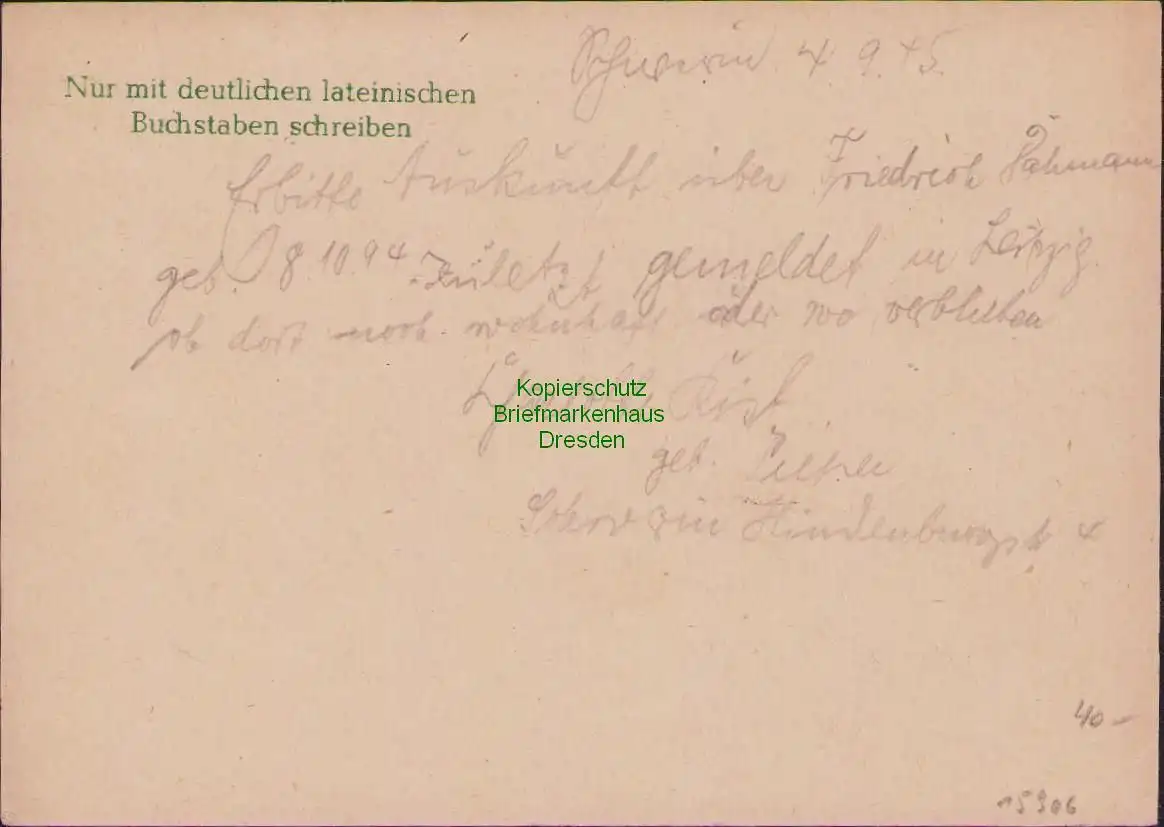 Schwerin 4 9 45
Nur mit deutlichen lateinischen
Buchstaben schreiben
Erbitte Auskunft über Friedrich
geb. 8 10 94 . Zuletzt gemeldet in Leipzig.
ob dort noch wohnhaft oder wo verblieben
Kopierschutz
Briefmarkenhaus
Dresden
geb.
Schwerin Hindenburgstr 4
40 –
15906